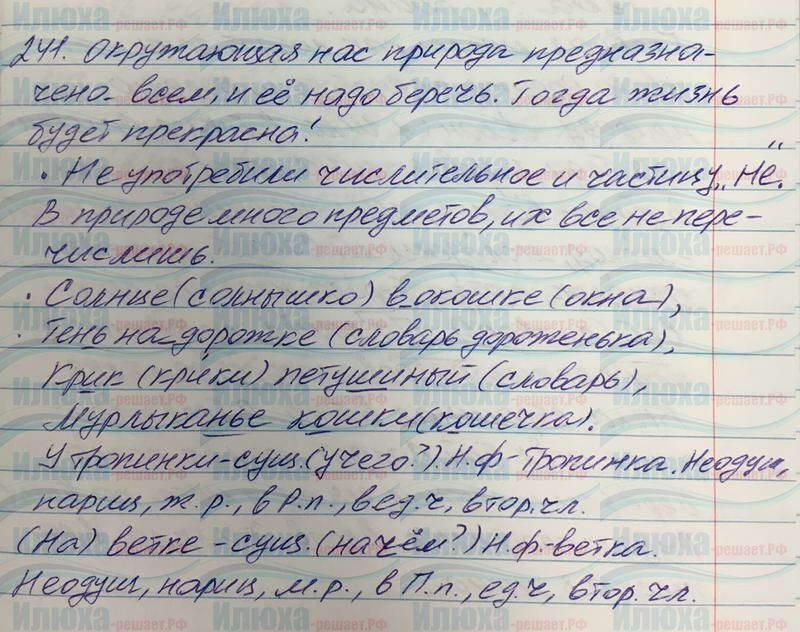 241. Окружающая нас природа предназна-
чена всем, и её надо беречь. Тогда жизнь
будет прекрасна!
· Не употребили числительное и частицу „Не".
В природе много предметов, их все не пере-
числишь.
· Солнце (солнышко) в окошке (окна),
· Тень на дорожке (словарь дороженька),
Крик (крики) петушиный (словарь),
Мурлыканье кошки (кошечка).
У тропинки - сущ. (у чего?). Н.ф - Тропинка. Неодуш,
нариц, ж.р., в Р.п., в ед.ч, втор.чл.
(На) ветке - сущ. (на чём?) Н.ф.-ветка.
Неодуш, нариц, м.р., в П.п., ед.ч, втор.чл.
Илюха-решает.РФ